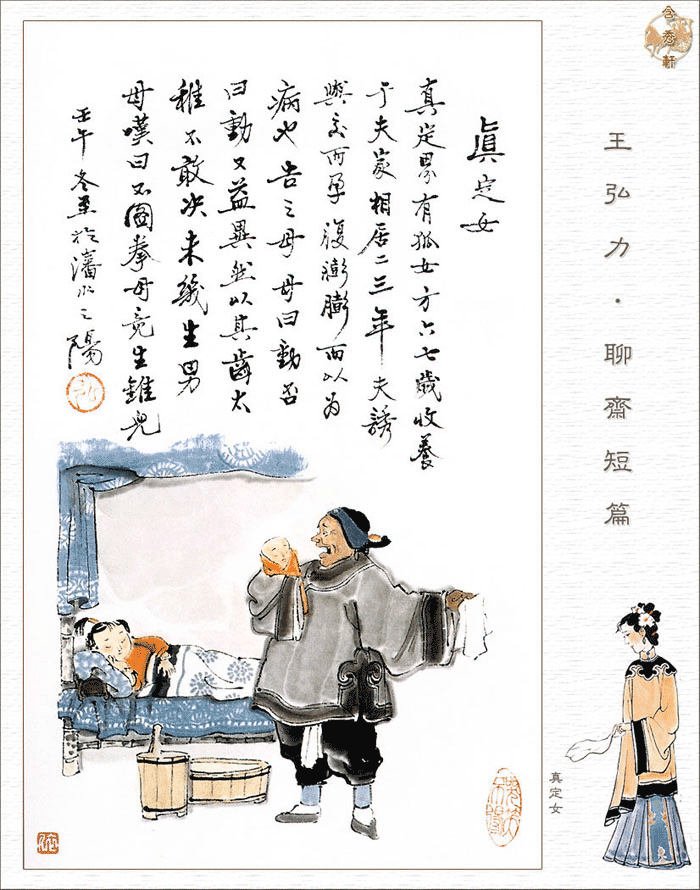 眞定女
真定界有孤女方六七歲收養
于夫家相居二三年夫誘
與交而孕腹膨膨而以为
病也告之母母曰動否
曰動又益異然以其齒太
稚不敢决未幾生男
母嘆曰不圖拳母竟生錐兒
壬午冬至於瀋水之陽
王弘力·聊齋短篇
真定女